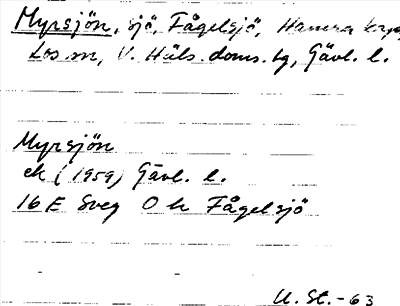 Myrsjön, sjö, Fågelsjö, Hamra kapf
Los sn, V. Häls. doms. tg, Gävl. l.
Myrsjön
ek (1959) Gävl. l.
16 E Sveg O k Fågelsjö
U. St. - 63